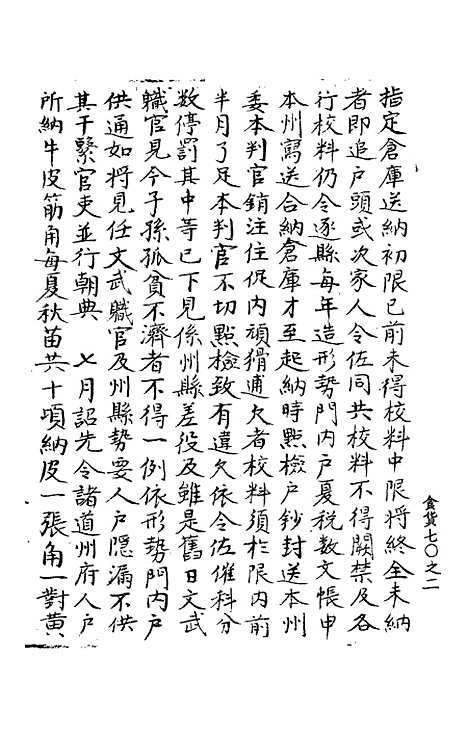 指定倉庫送納初限已前未得校料中限將終全未納
者即追戶頭或次家人令佐同共校料不得闕禁及各
行校料仍令逐縣每年造形勢門內戶夏稅數文帳申
本州寫送合納倉庫才至起納時點檢戶鈔封送本州
委本判官銷注住促內頑猾逋欠者校料須於限內前
半月了足本判官不切點檢致有違欠依令佐催科分
數停罰其中等已下見係州縣差役及雖是舊日文武
職官見今子孫孤貧不濟者不得一例依形勢門內戶
供通如將見任文武職官及州縣勢要人戶隱漏不供
其干繫官吏並行朝典　七月詔先令諸道州府人戶
所納牛皮筋角每夏秋苗共十頃納皮一張角一對黃
食貨七〇之二